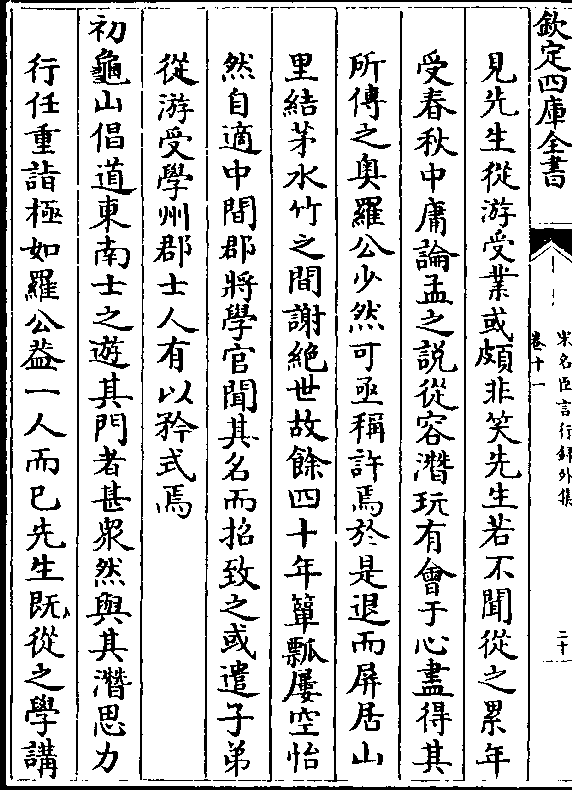 欽定四庫全書
宋名臣言行録外集
卷十一
二十
見先生從游受業或頗非笑先生若不聞從之累年
受春秋中庸論孟之説從容潛玩有會于心盡得其
所傳之奥羅公少然可亟稱許焉於是退而屏居山
里結茅水竹之間謝絶世故餘四十年簞瓢屢空怡
然自適中間郡將學官聞其名而招致之或遣子弟
從游受學州郡士人有以矜式焉
初龜山倡道東南士之遊其門者甚衆然與其潛思力
行任重詣極如羅公葢一人而已先生既從之學講